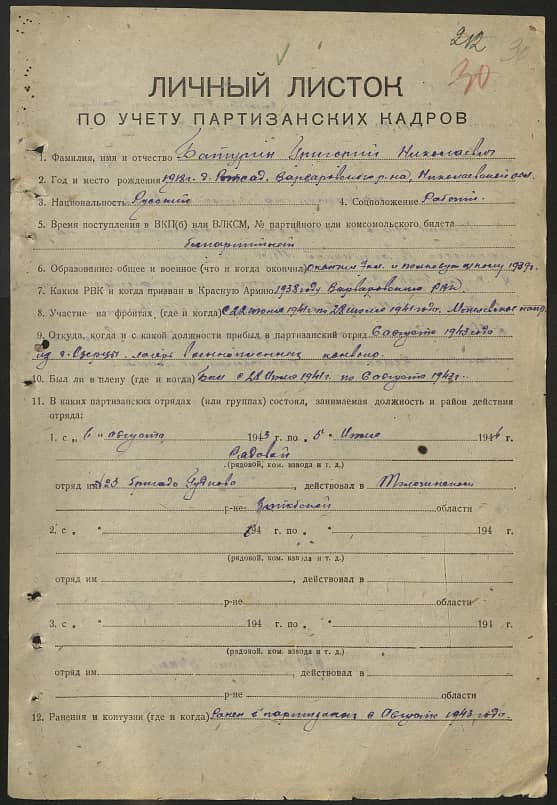 212
30
30
ЛИЧНЫЙ ЛИСТОК
ПО УЧЕТУ ПАРТИЗАНСКИХ КАДРОВ
1. Фамилия, имя и отчество Батурин Григорий Николаевич
2. Год и место рождения 1918 г. д. сад. Варваровского р-на, Николаевской обл.
3. Национальность Русский 4. Соцположение Рабочий
5. Время поступления в ВКП(б) или ВЛКСМ, № партийного или комсомольского билета
беспартийный
6. Образование: общее и военное (что и когда окончил) окончил 7 кл. и полковую школу 1939 г.
7. Каким РВК и когда призван в Красную Армию 1938 году Варваровским РВК
8. Участие на фронтах, (где и когда) С 22 июня 1941 г. по 28 июля 1941 года. направ.
9. Откуда, когда и с какой должности прибыл в партизанский отряд 6 августа 1943 года
из д. лагерь Военнопленных
10. Был ли в плену (где и когда) Был с 28 Июля 1941 г. по 6 августа 1943 г.
11. В каких партизанских отрядах (или группах) состоял, занимаемая должность и район действия
отряда:
1. с „ 6 “ августа 1943 г. по „ 5 “ Июля 1944 г.
Рядовой
(рядовой, ком. взвода и т. д.)
отряд им. № 23 бригада Гудкова, действовал в Толочинском
р-не Витебской области
2. с „ “ 194 г. по „ “ 194 г.
(рядовой, ком. взвода и т. д.)
отряд им , действовал в
р-не области
3. с „ “ 194 г. по „ “ 194 г.
(рядовой, ком. взвода и т. д.)
отряд им. , действовал в
р-не области
12. Ранения и контузии (где и когда) Ранен в партизанах в Августе 1943 года.